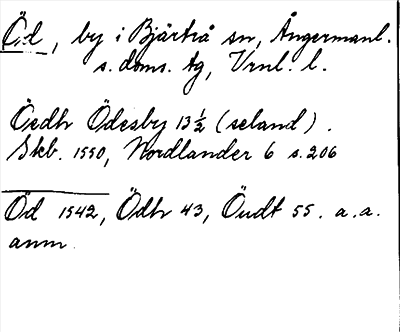 Öd, by i Bjärtrå sn, Ångermanl.
s. doms. tg, Vrnl. l.
Öedh Ödesby 13½ (seland).
Skb. 1550, Nordlander 6 s. 206
Öd 1542, Ödh 43, Öudt 55. a.a.
anm.